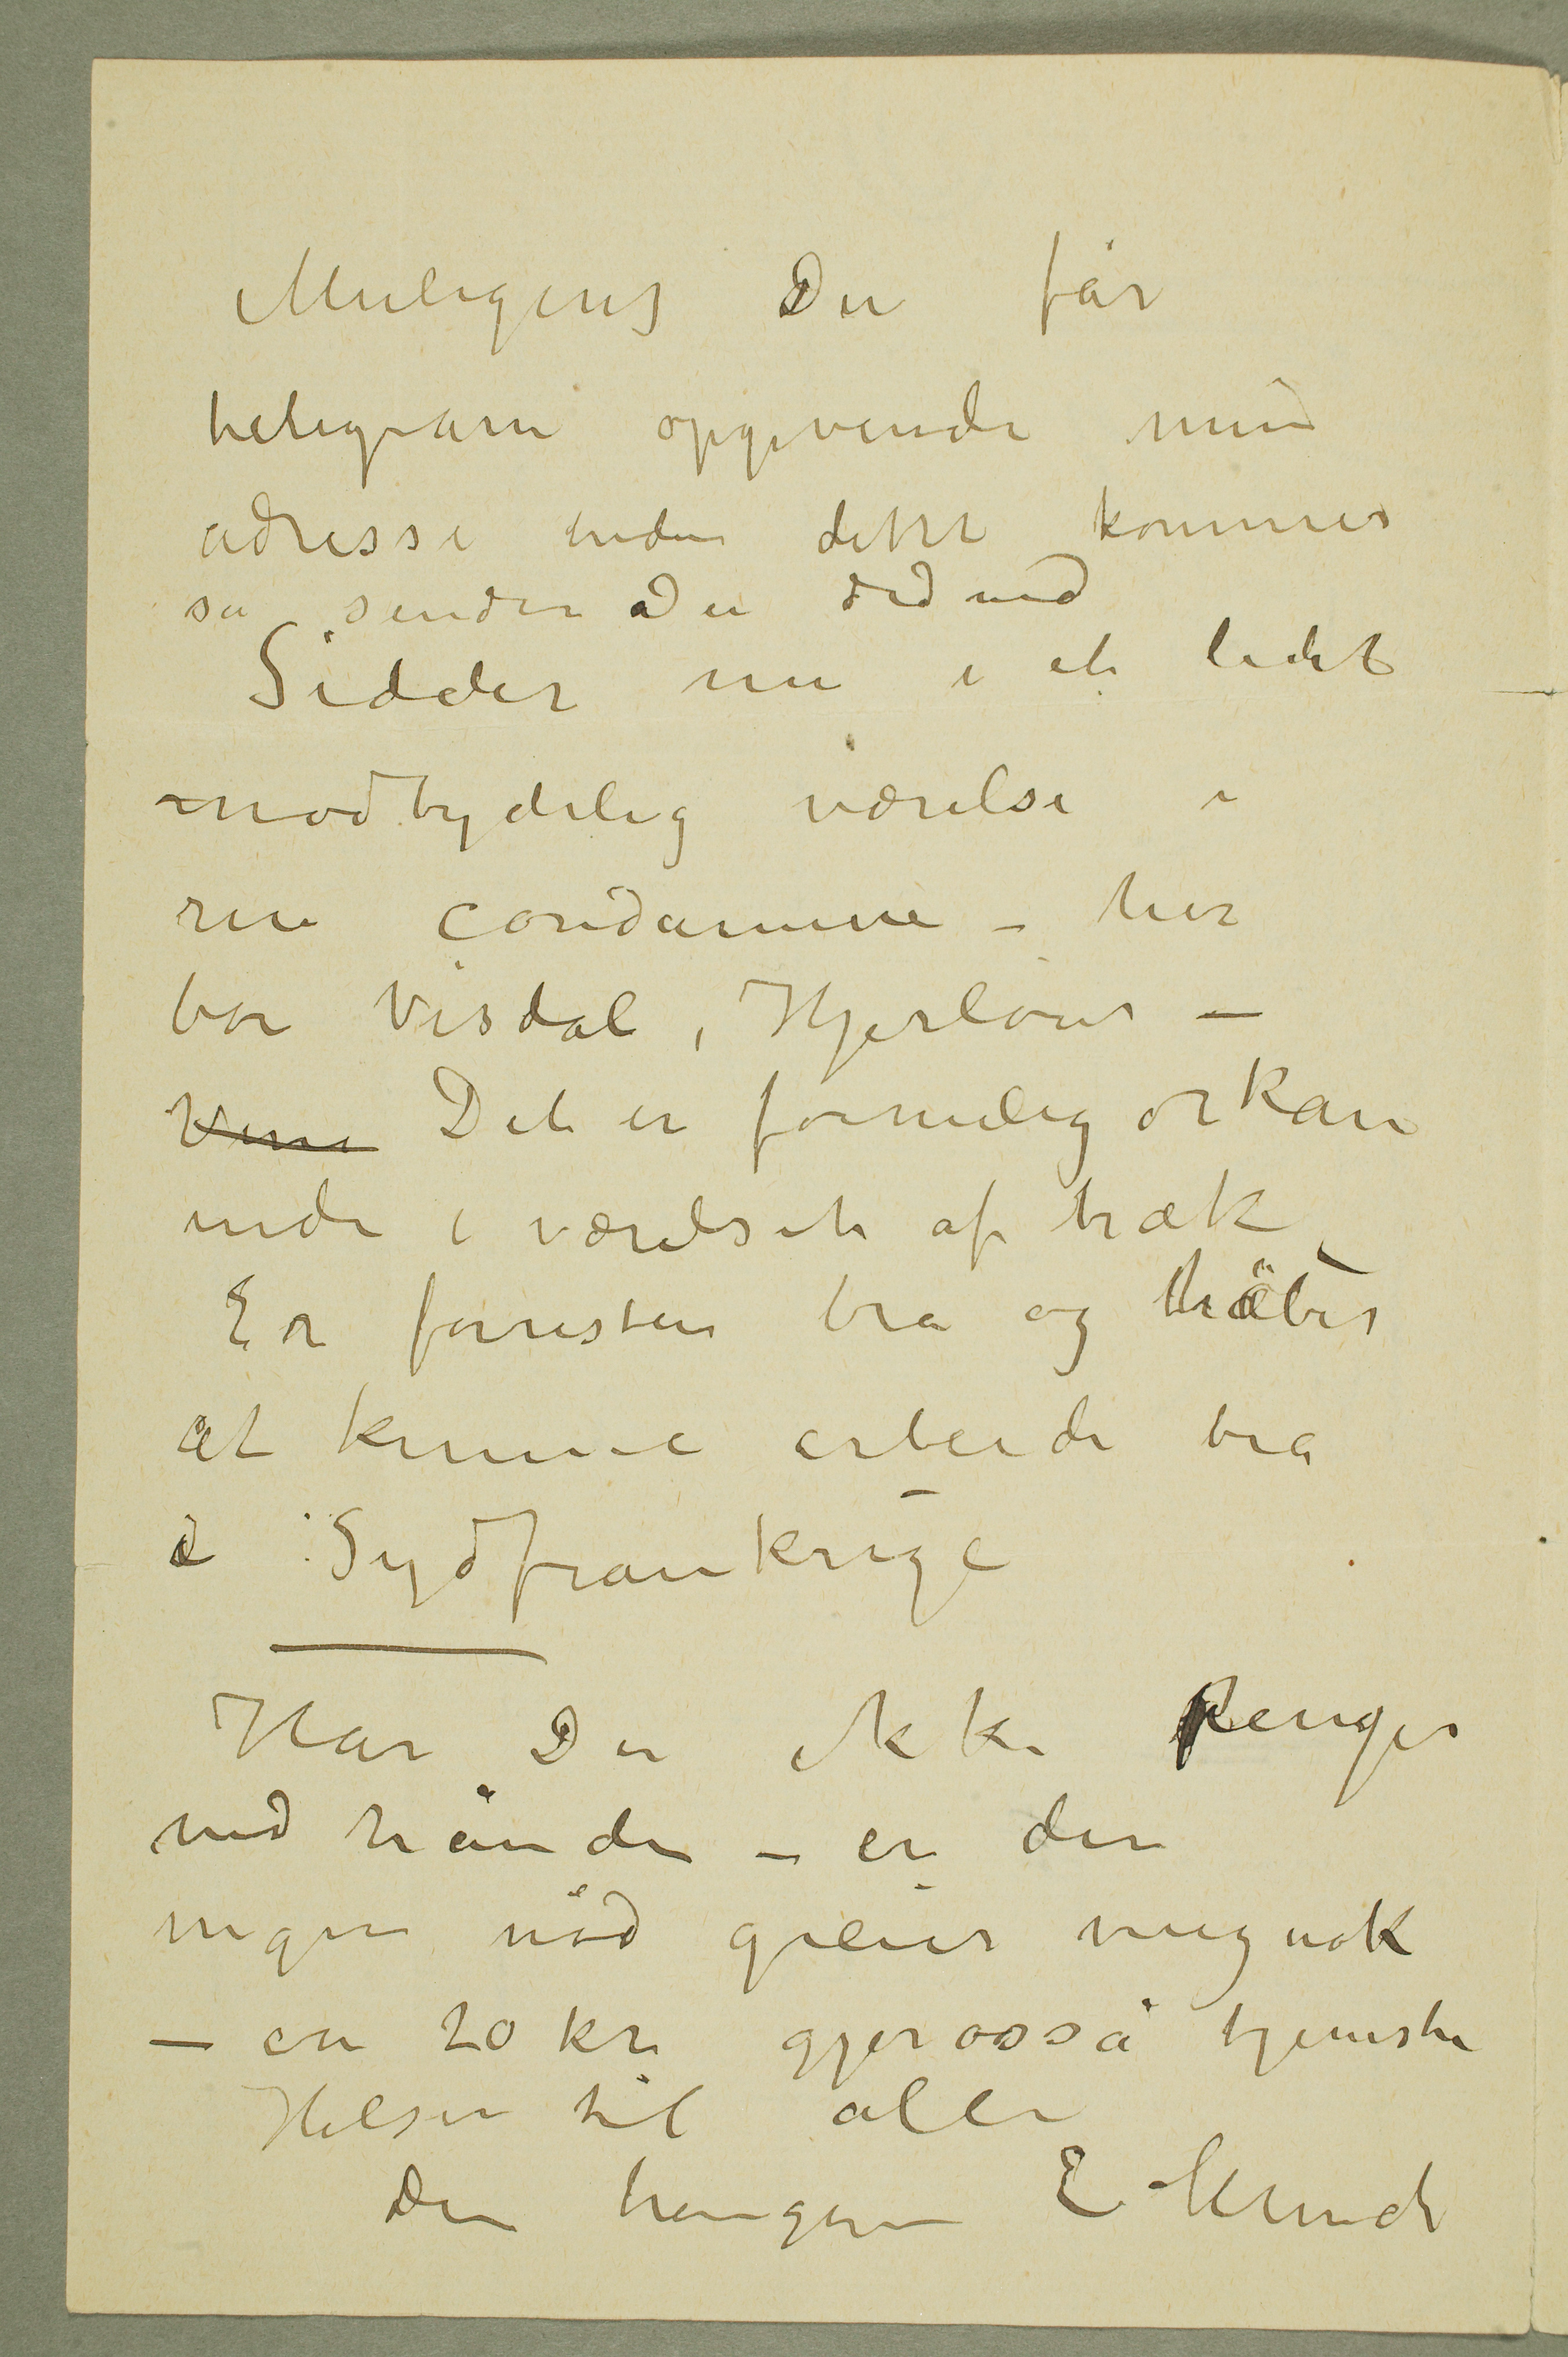 Muligens Du får
telegram opgivende min
adresse inden dette kommer
så sender Du did ned
Sidder nu i et lidet
modbydelig værelse i
rue condamine – her
bor Visdal, Hjerlow –
Det er formelig orkan
inde i værelset af træk
Er forresten bra og håber
at kunne arbeide bra
i Sydfrankrige
Har Du ikke Penger
ved hånden – er der
ingen nød greier mig nok
– en 20 kr. gjør osså tjeneste
Hilsen til alle
Din hengivne E Munch